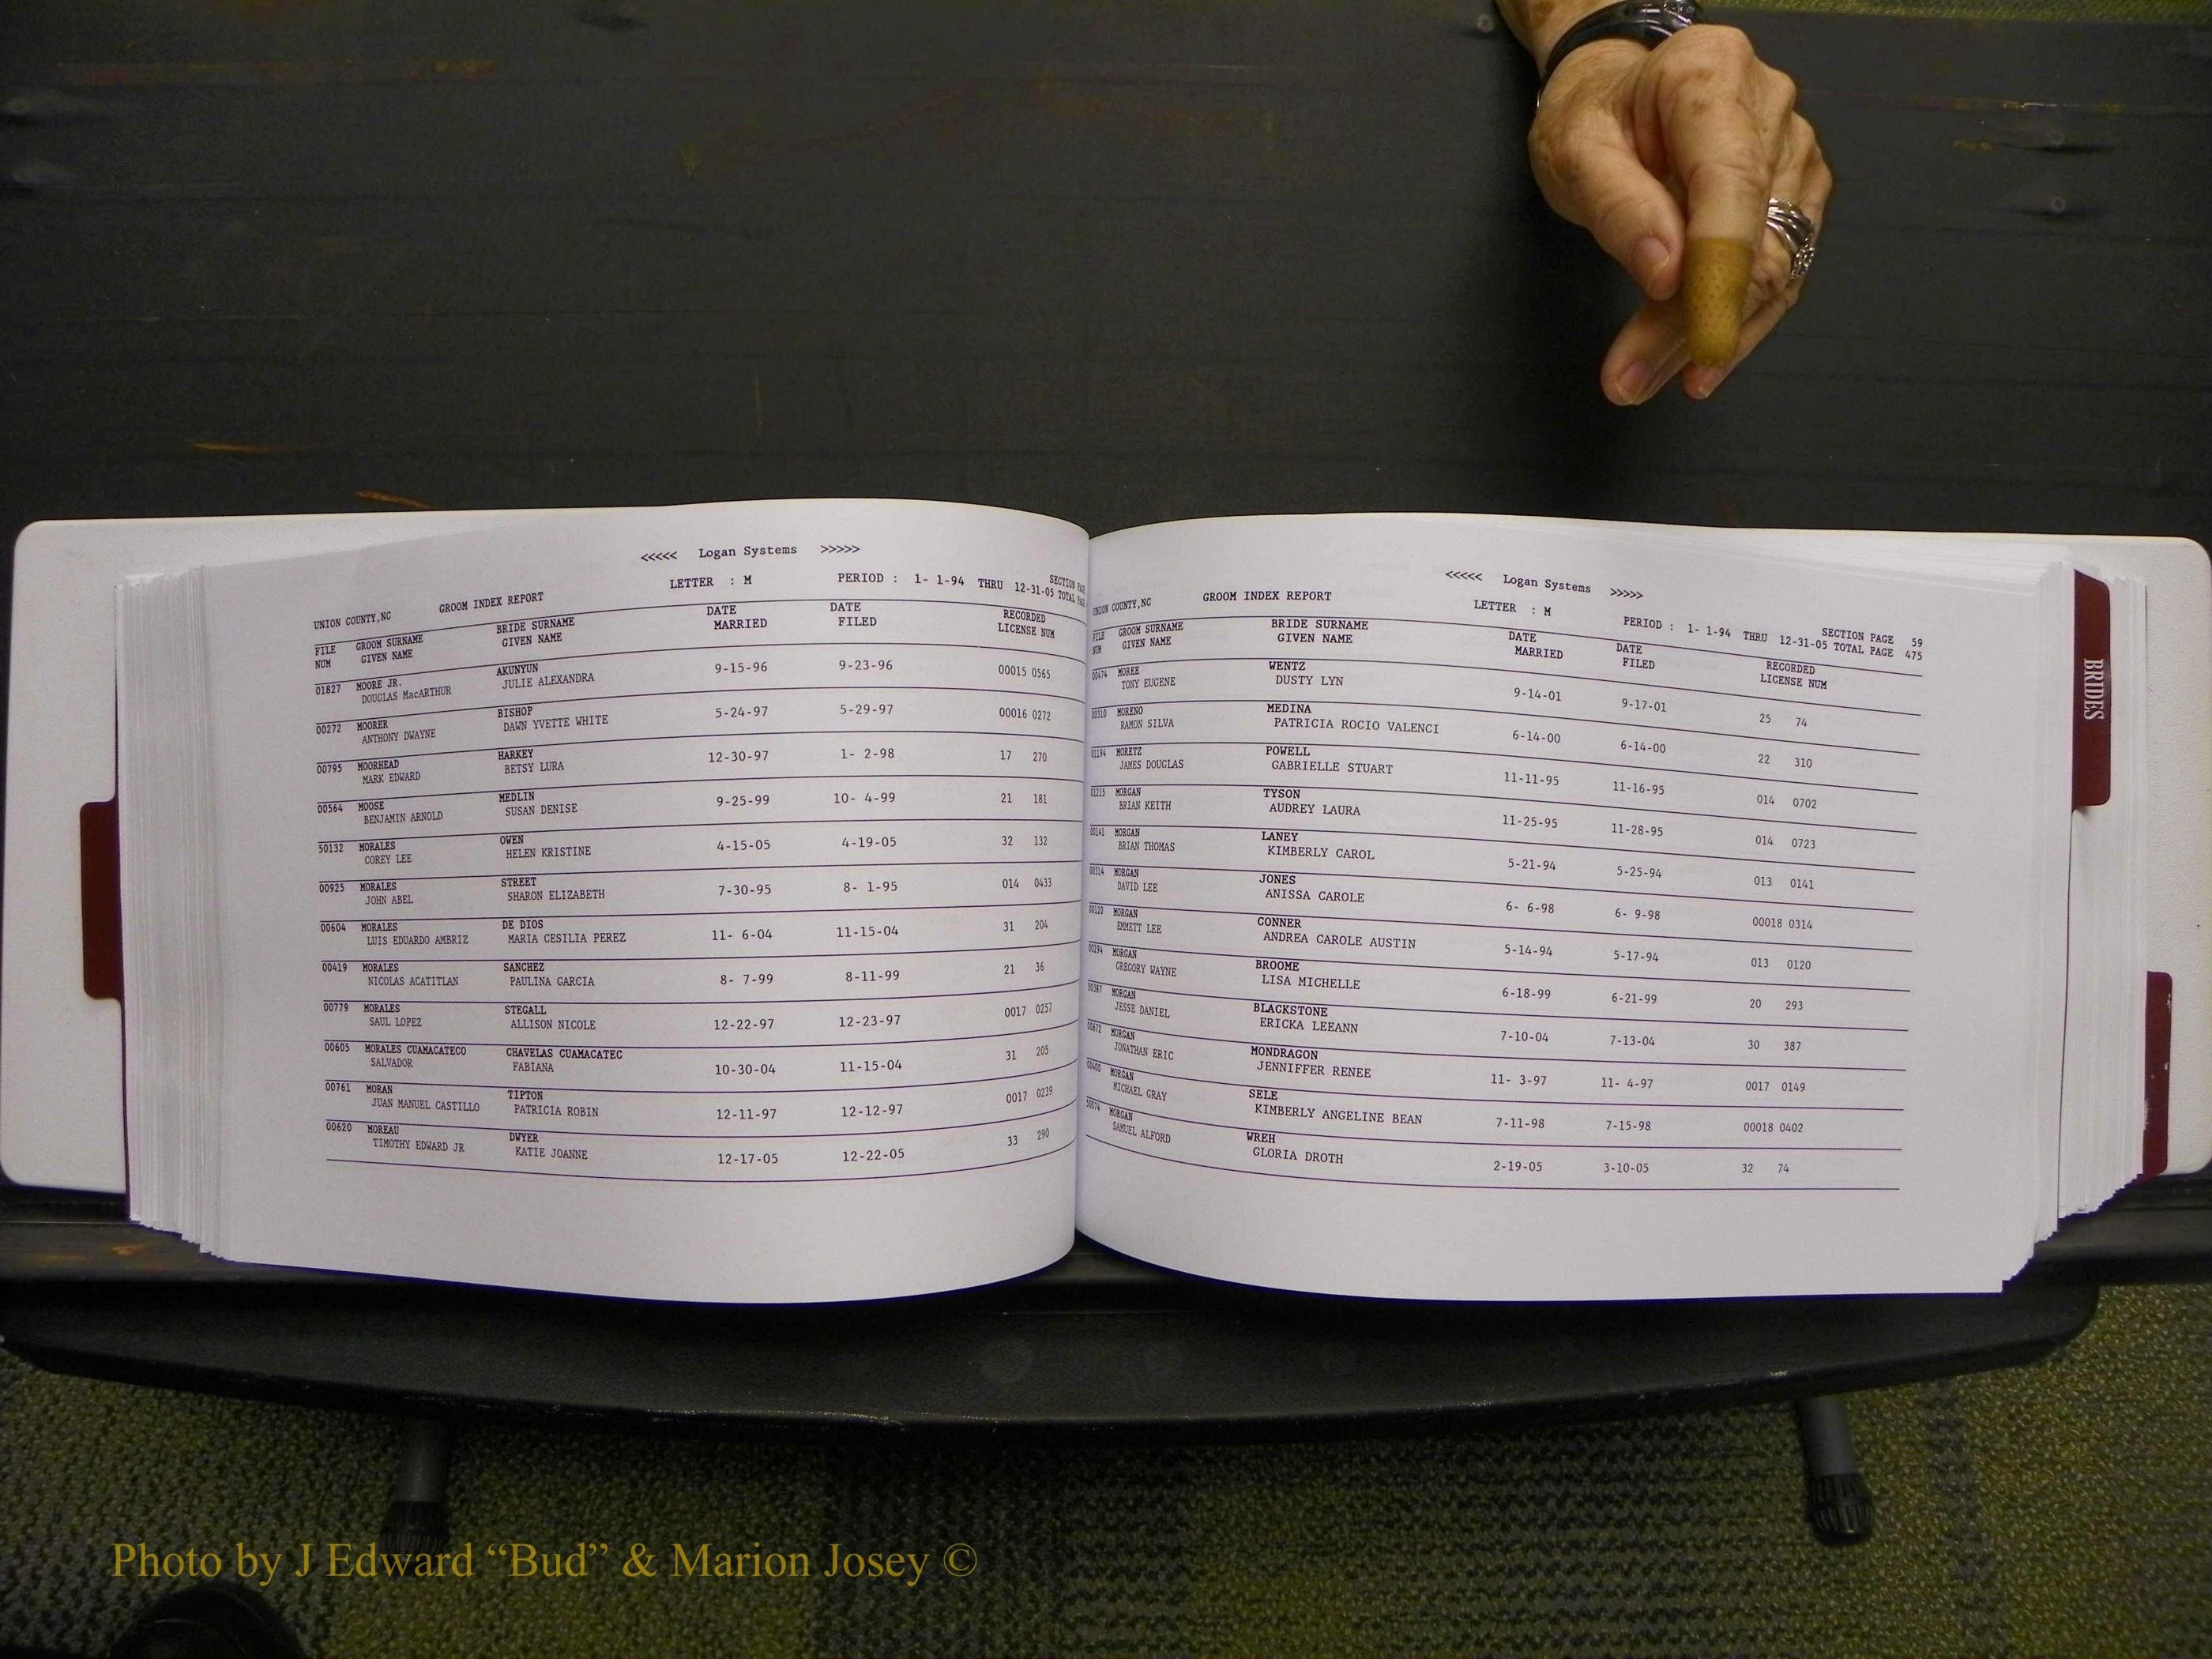 <<<<< Logan Systems >>>>>
UNION COUNTY,NC GROOM INDEX REPORT LETTER : M PERIOD : 1- 1-94 THRU 12-31-05 SECTION
TOTAL
FILE GROOM SURNAME BRIDE SURNAME DATE DATE RECORDED
NUM GIVEN NAME GIVEN NAME MARRIED FILED LICENSE NUM
01827 MOORE JR. AKUNYUN 9-15-96 9-23-96 00015 0565
DOUGLAS MacARTHUR JULIE ALEXANDRA
00272 MOORER BISHOP 5-24-97 5-29-97 00016 0272
ANTHONY DWAYNE DAWN YVETTE WHITE
00795 MOORHEAD HARKEY 12-30-97 1- 2-98 17 270
MARK EDWARD BETSY LURA
00564 MOOSE MEDLIN 9-25-99 10- 4-99 21 181
BENJAMIN ARNOLD SUSAN DENISE
50132 MORALES OWEN 4-15-05 4-19-05 32 132
COREY LEE HELEN KRISTINE
00925 MORALES STREET 7-30-95 8- 1-95 014 0433
JOHN ABEL SHARON ELIZABETH
00604 MORALES DE DIOS 11- 6-04 11-15-04 31 204
LUIS EDUARDO AMBRIZ MARIA CESILIA PEREZ
00419 MORALES SANCHEZ 8- 7-99 8-11-99 21 36
NICOLAS ACATITLAN PAULINA GARCIA
00779 MORALES STEGALL 12-22-97 12-23-97 0017 0257
SAUL LOPEZ ALLISON NICOLE
00605 MORALES CUAMACATECO CHAVELAS CUAMACATEC 10-30-04 11-15-04 31 205
SALVADOR FABIANA
00761 MORAN TIPTON 12-11-97 12-12-97 0017 0239
JUAN MANUEL CASTILLO PATRICIA ROBIN
00620 MOREAU DWYER 12-17-05 12-22-05 33 290
TIMOTHY EDWARD JR KATIE JOANNE
<<<<< Logan Systems >>>>>
UNION COUNTY,NC GROOM INDEX REPORT LETTER : M PERIOD : 1- 1-94 THRU 12-31-05 SECTION PAGE 59
TOTAL PAGE 475
FILE GROOM SURNAME BRIDE SURNAME DATE DATE RECORDED
NUM GIVEN NAME GIVEN NAME MARRIED FILED LICENSE NUM
00474 MOREE WENTZ 9-14-01 9-17-01 25 74
TONY EUGENE DUSTY LYN
00310 MORENO MEDINA 6-14-00 6-14-00 22 310
RAMON SILVA PATRICIA ROCIO VALENCI
01194 MORETZ POWELL 11-11-95 11-16-95 014 0702
JAMES DOUGLAS GABRIELLE STUART
01215 MORGAN TYSON 11-25-95 11-28-95 014 0723
BRIAN KEITH AUDREY LAURA
00141 MORGAN LANEY 5-21-94 5-25-94 013 0141
BRIAN THOMAS KIMBERLY CAROL
00314 MORGAN JONES 6- 6-98 6- 9-98 00018 0314
DAVID LEE ANISSA CAROLE
00120 MORGAN CONNER 5-14-94 5-17-94 013 0120
EMMETT LEE ANDREA CAROLE AUSTIN
00294 MORGAN BROOME 6-18-99 6-21-99 20 293
GREGORY WAYNE LISA MICHELLE
00387 MORGAN BLACKSTONE 7-10-04 7-13-04 30 387
JESSE DANIEL ERICKA LEEANN
00672 MORGAN MONDRAGON 11- 3-97 11- 4-97 0017 0149
JONATHAN ERIC JENNIFFER RENEE
00400 MORGAN SELE 7-11-98 7-15-98 00018 0402
MICHAEL GRAY KIMBERLY ANGELINE BEAN
50074 MORGAN WREH 2-19-05 3-10-05 32 74
SAMUEL ALFORD GLORIA DROTH
BRIDES
Photo by J Edward “Bud” & Marion Josey ©